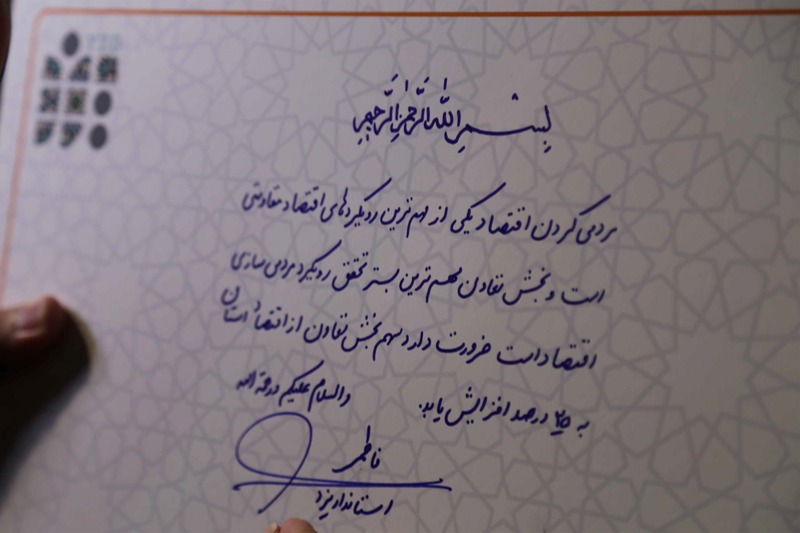 بسم الله الرحمن الرحیم
مردمی کردن اقتصاد یکی از مهم‌ترین رویکردهای اقتصاد مقاومتی
است و بخش تعاون مهم‌ترین بستر تحقق رویکرد مردمی سازی
اقتصاد است ضرورت دارد سهم بخش تعاون از اقتصاد استان
به ۲۵ درصد افزایش یابد.
والسلام علیکم و رحمة الله
فاطمی
استاندار یزد